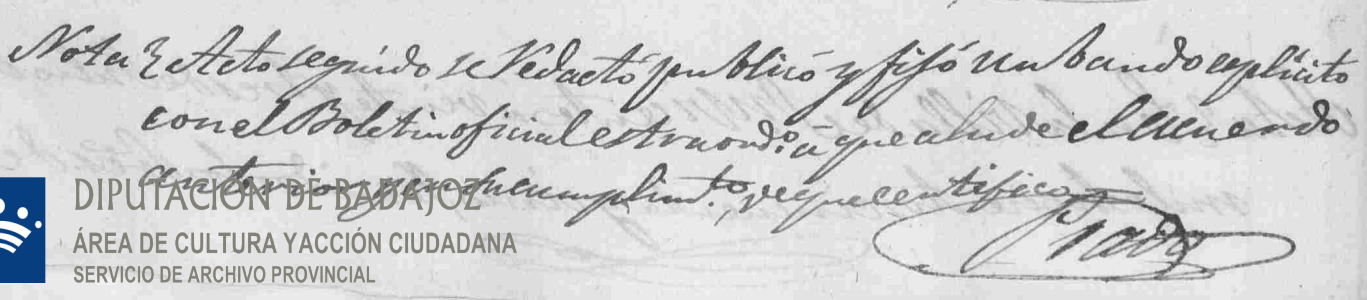 Nota } Acto seguido se redactó publicó y fijó un bando esplicito
con el Boletin oficial estraord.º á que alude el acuerdo
anterior para su cumplim.to, de que certifico
Prado
DIPUTACIÓN DE BADAJOZ
ÁREA DE CULTURA Y ACCIÓN CIUDADANA
SERVICIO DE ARCHIVO PROVINCIAL